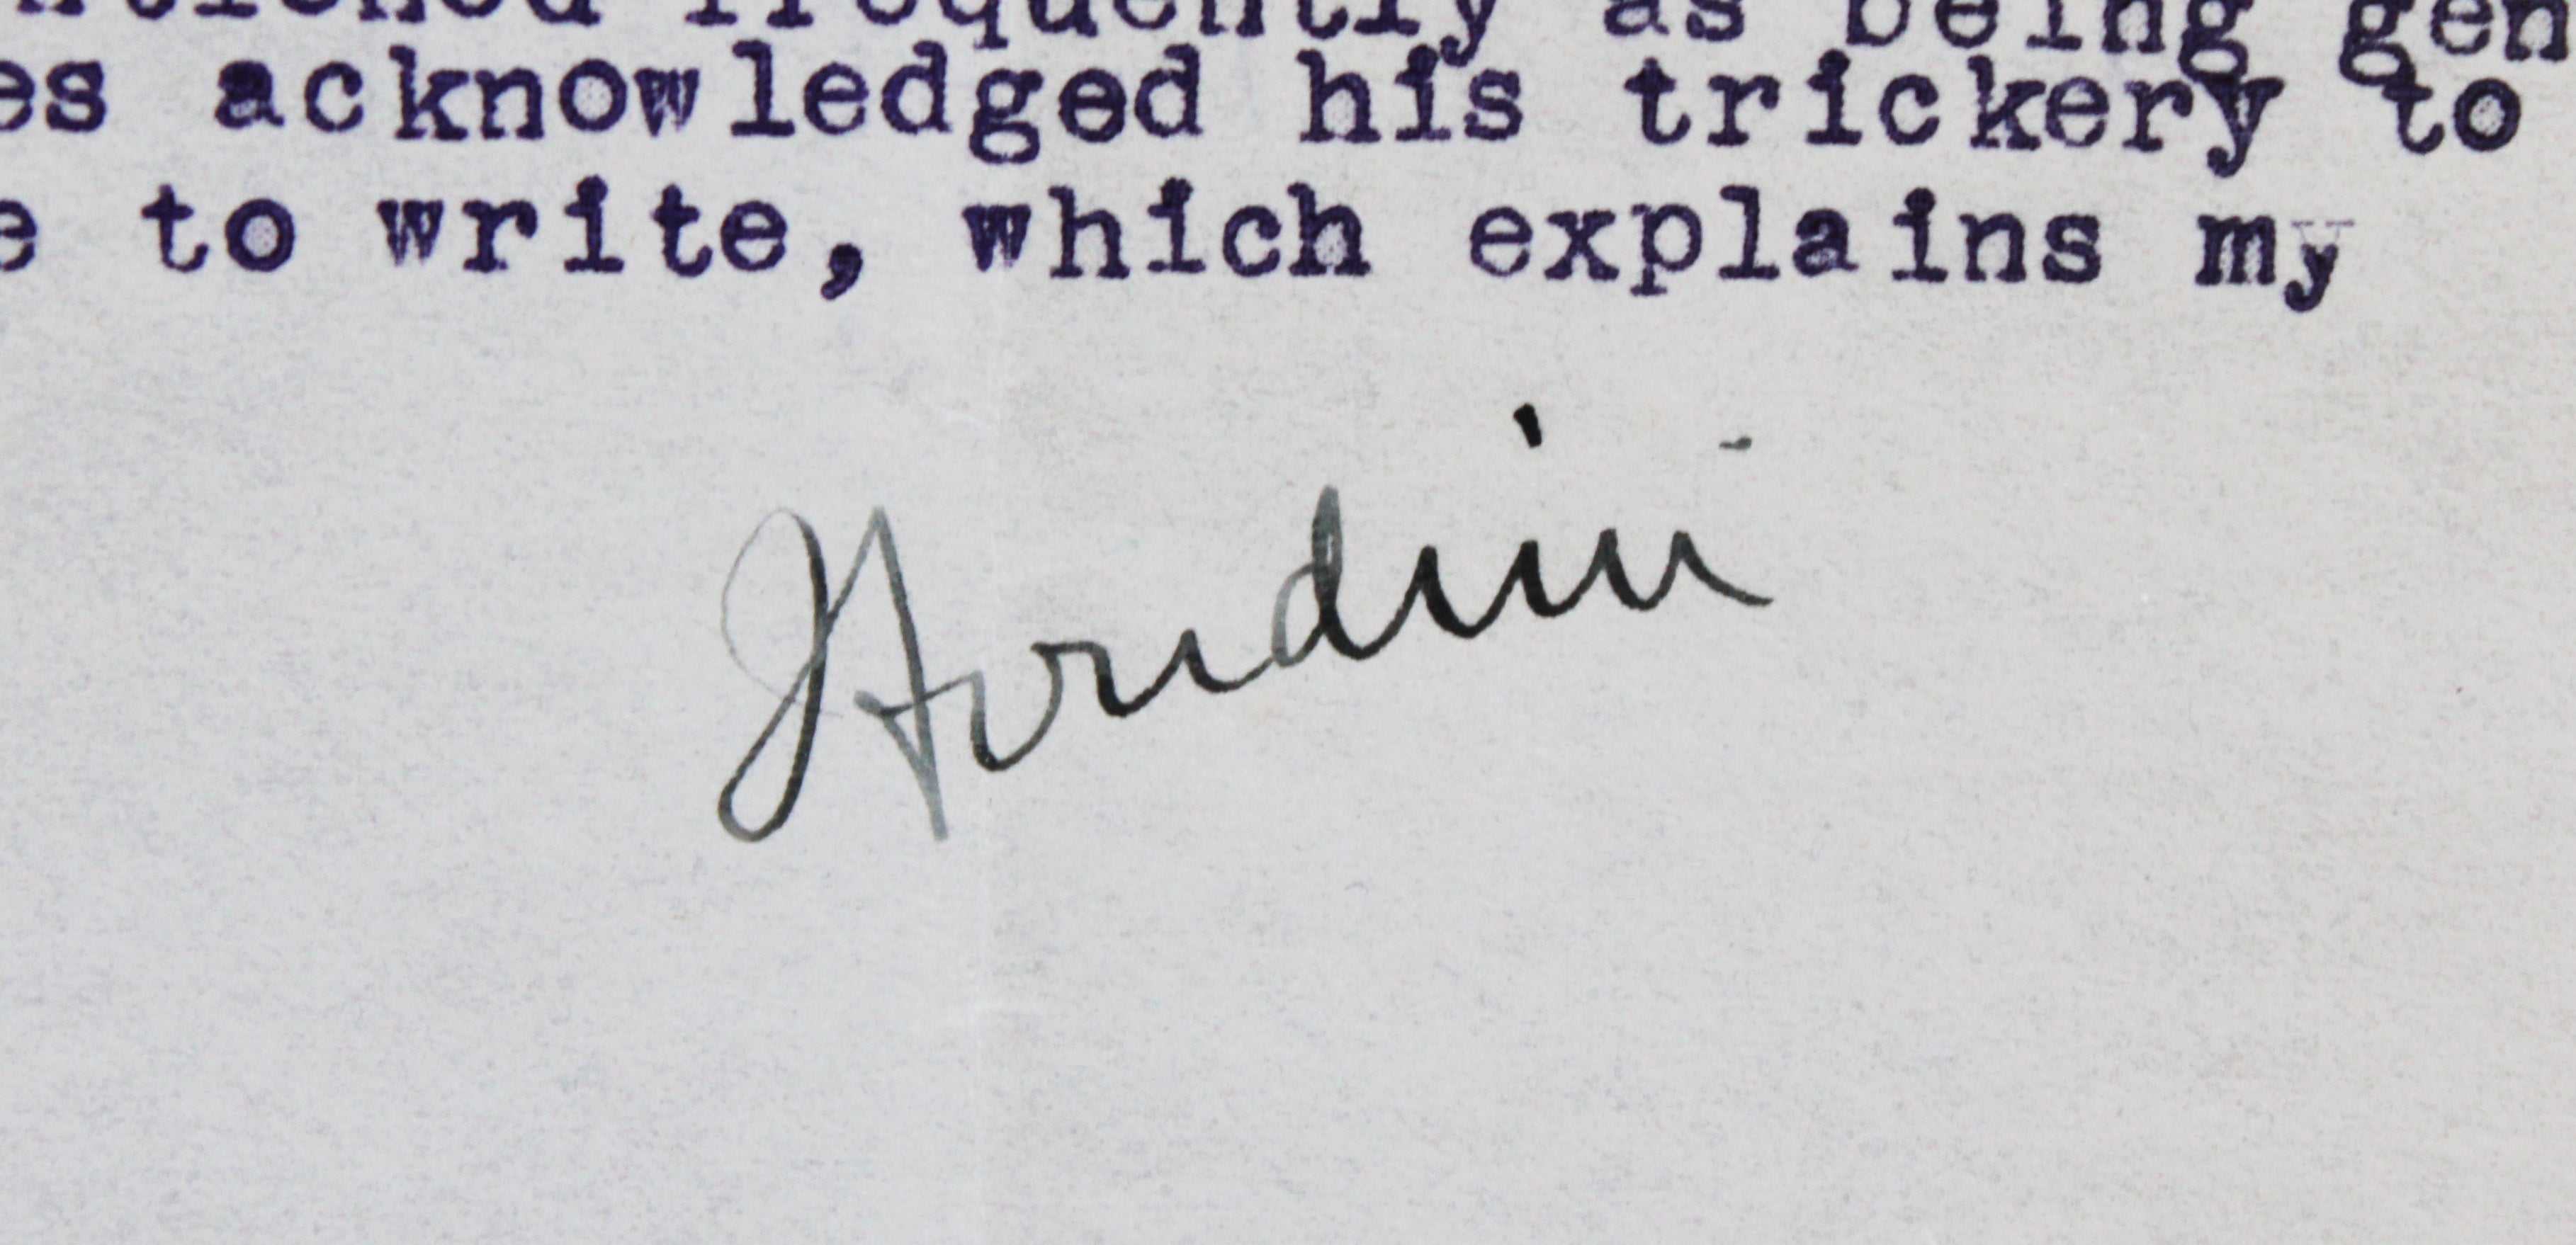 frequently as being gen
es acknowledged his trickery to
e to write, which explains my
Houdini